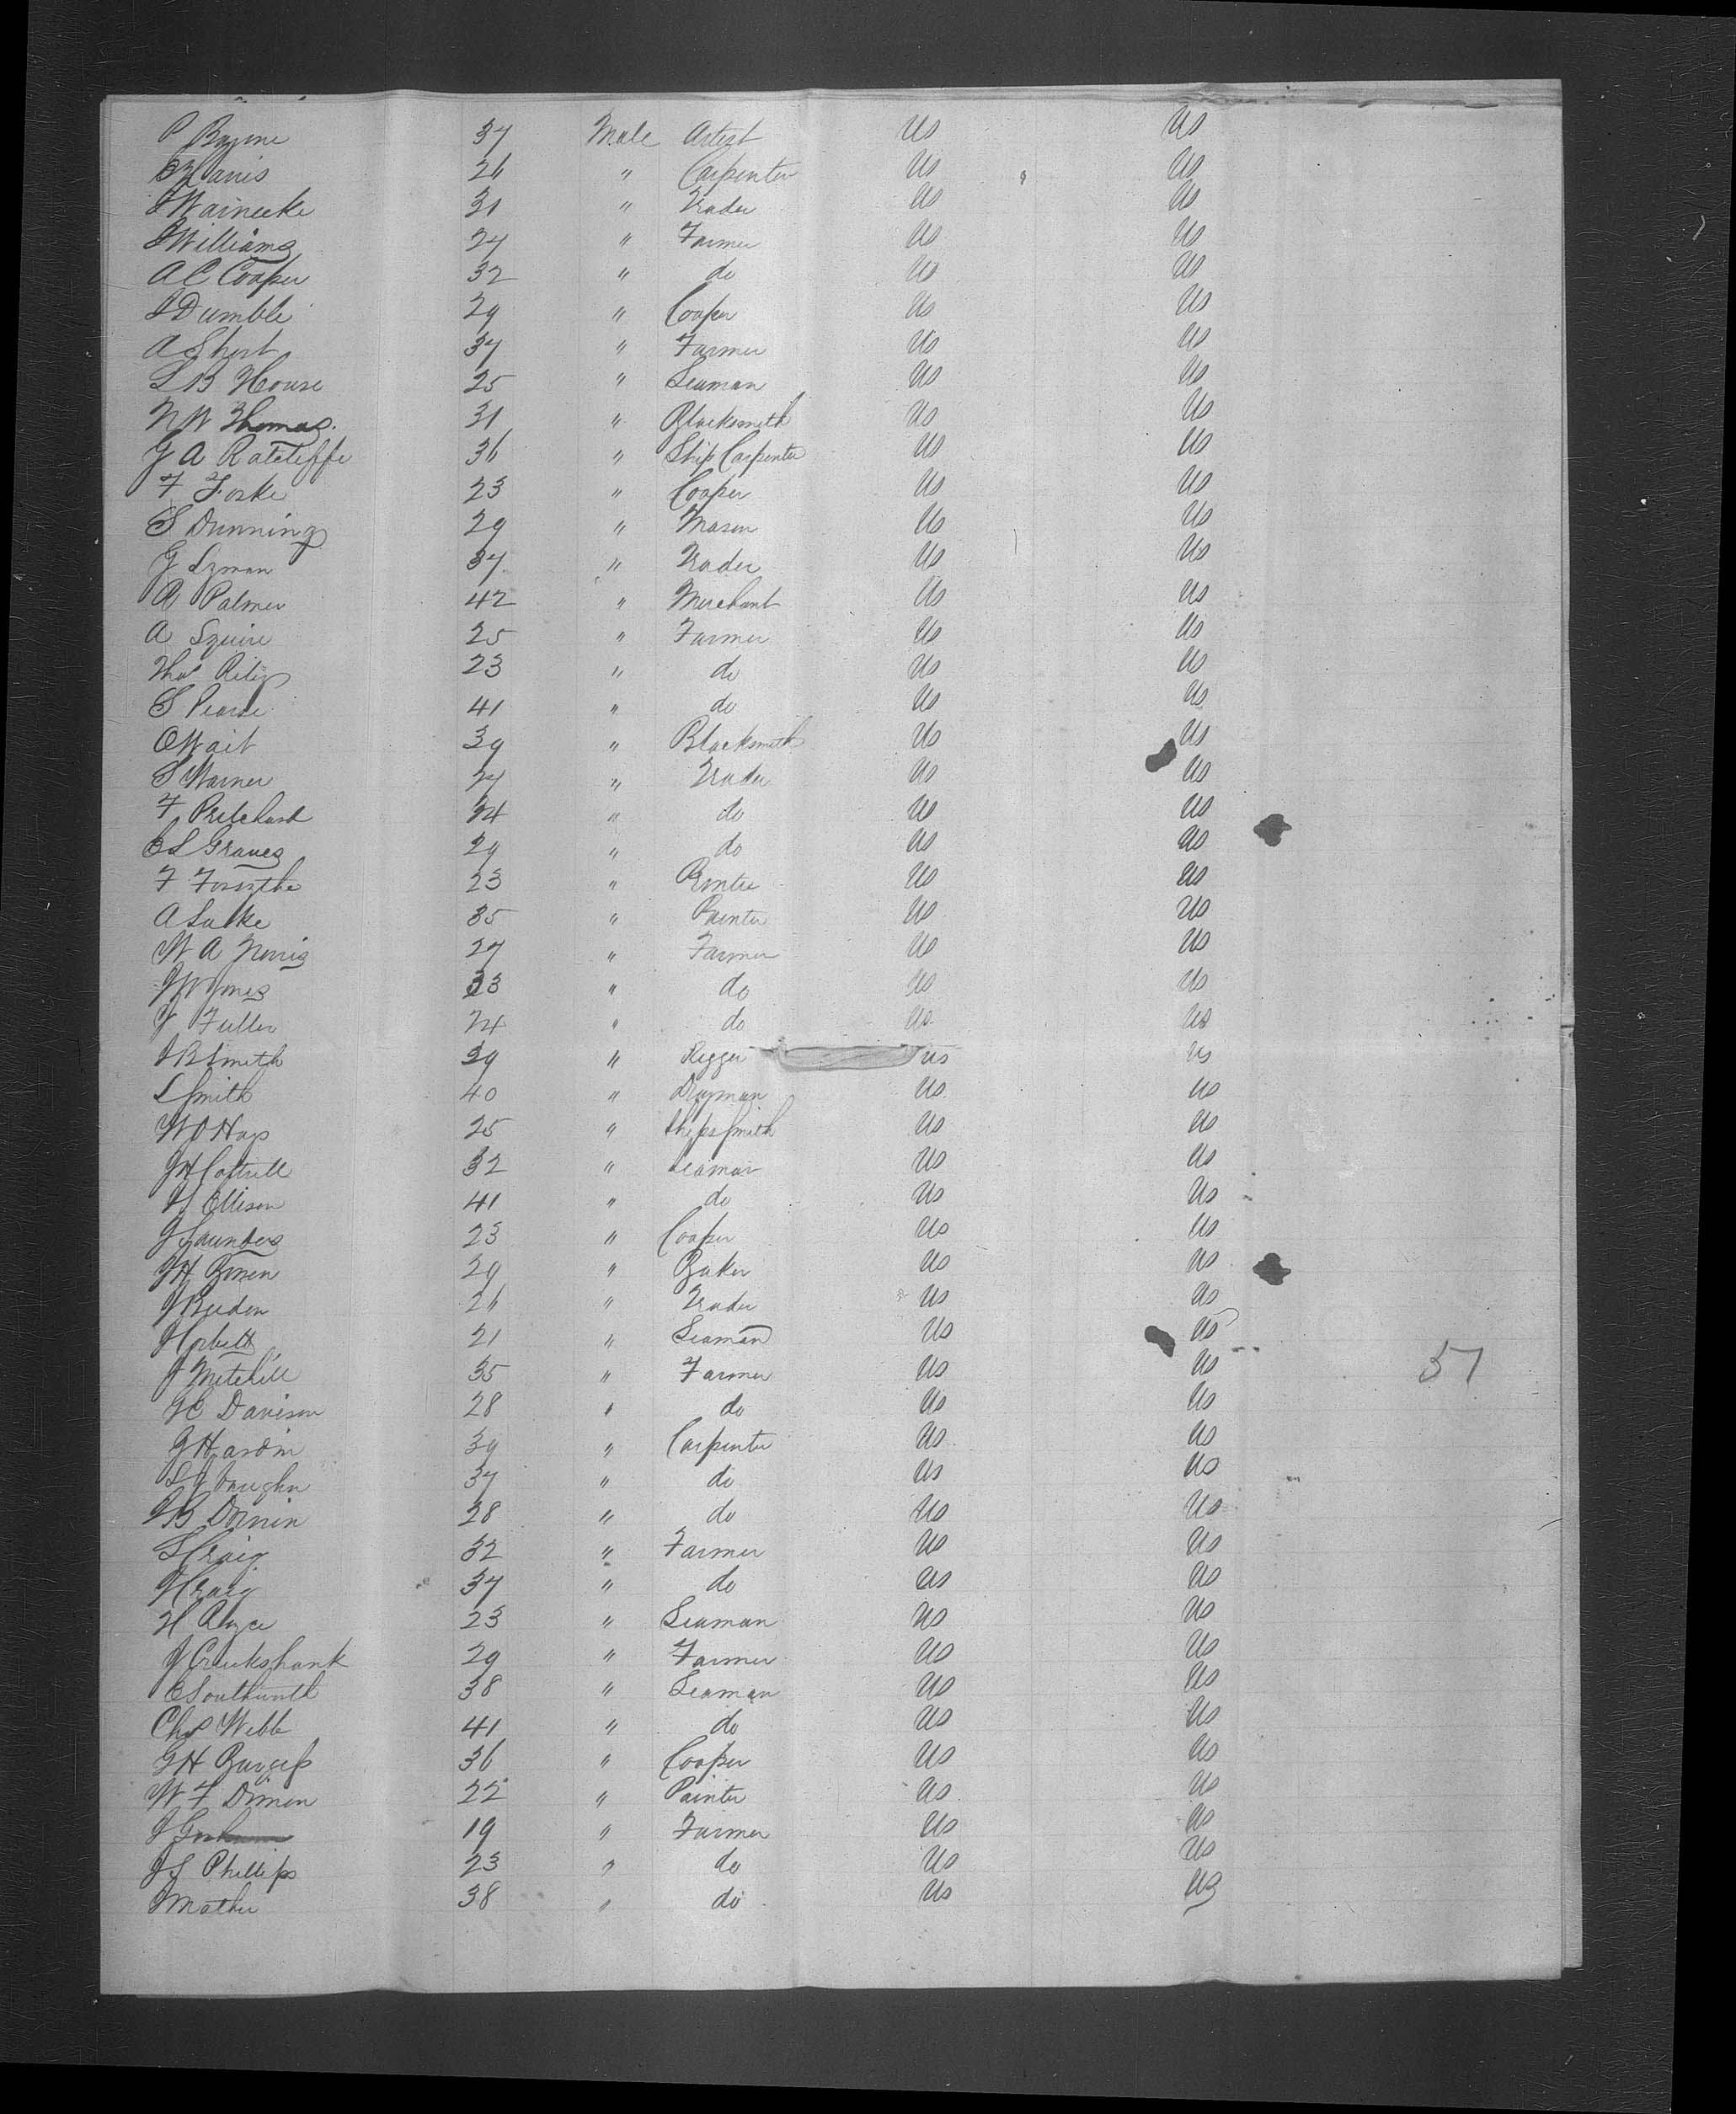 P Bayme 37 Male Artist US US
Davis 26 " Carpenter US US
J Warnecke 31 " Trader US US
J Williams 27 " Farmer US US
A C Cooper 32 " do US US
J Dumble 29 " Cooper US US
A Short 37 " Farmer US US
L B House 25 " Seaman US US
N W Thomas 31 " Blacksmith US US
J A Ratcliffe 36 " Ship Carpenter US US
F Foske 23 " Cooper US US
S Dunning 29 " Mason US US
G Lyman 37 " Trader US US
R Palmer 42 " Merchant US US
A Squire 25 " Farmer US US
Thos Riley 23 " do US US
S Pearse 41 " do US US
O Wait 39 " Blacksmith US US
S Warner 27 " Trader US US
F Pritchard 34 " do US US
C L Graves 29 " do US US
F Forsythe 23 " US US
A Luske 35 " Painter US US
W A Norris 27 " Farmer US US
33 " do US US
J Fuller 24 " do US US
J B Smith 39 " Rigger US US
L Smith 40 " Drayman US US
W O Hays 25 " Ships Smith US US
J H Cottrell 32 " Seaman US US
J Ellison 41 " do US US
J Saunders 23 " Cooper US US
J H Bowen 29 " Baker US US
J Burdon 26 " Trader US US
21 " Seaman US US
J Mitchell 35 " Farmer US US
57
G C Davison 28 " do US US
G Hardin 39 " Carpenter US US
S J Vaughn 37 " do US US
J B Dornin 28 " do US US
S Craig 32 " Farmer US US
J Craig 37 " do US US
H 23 " Seaman US US
J Cruikshank 29 " Farmer US US
E 38 " Seaman US US
Chs Webb 41 " do US US
G H Burgess 36 " Cooper US US
W F Dimon 22 " Painter US US
J Gorham 19 " Farmer US US
J S Phillips 23 " do US US
Mather 38 " do US US